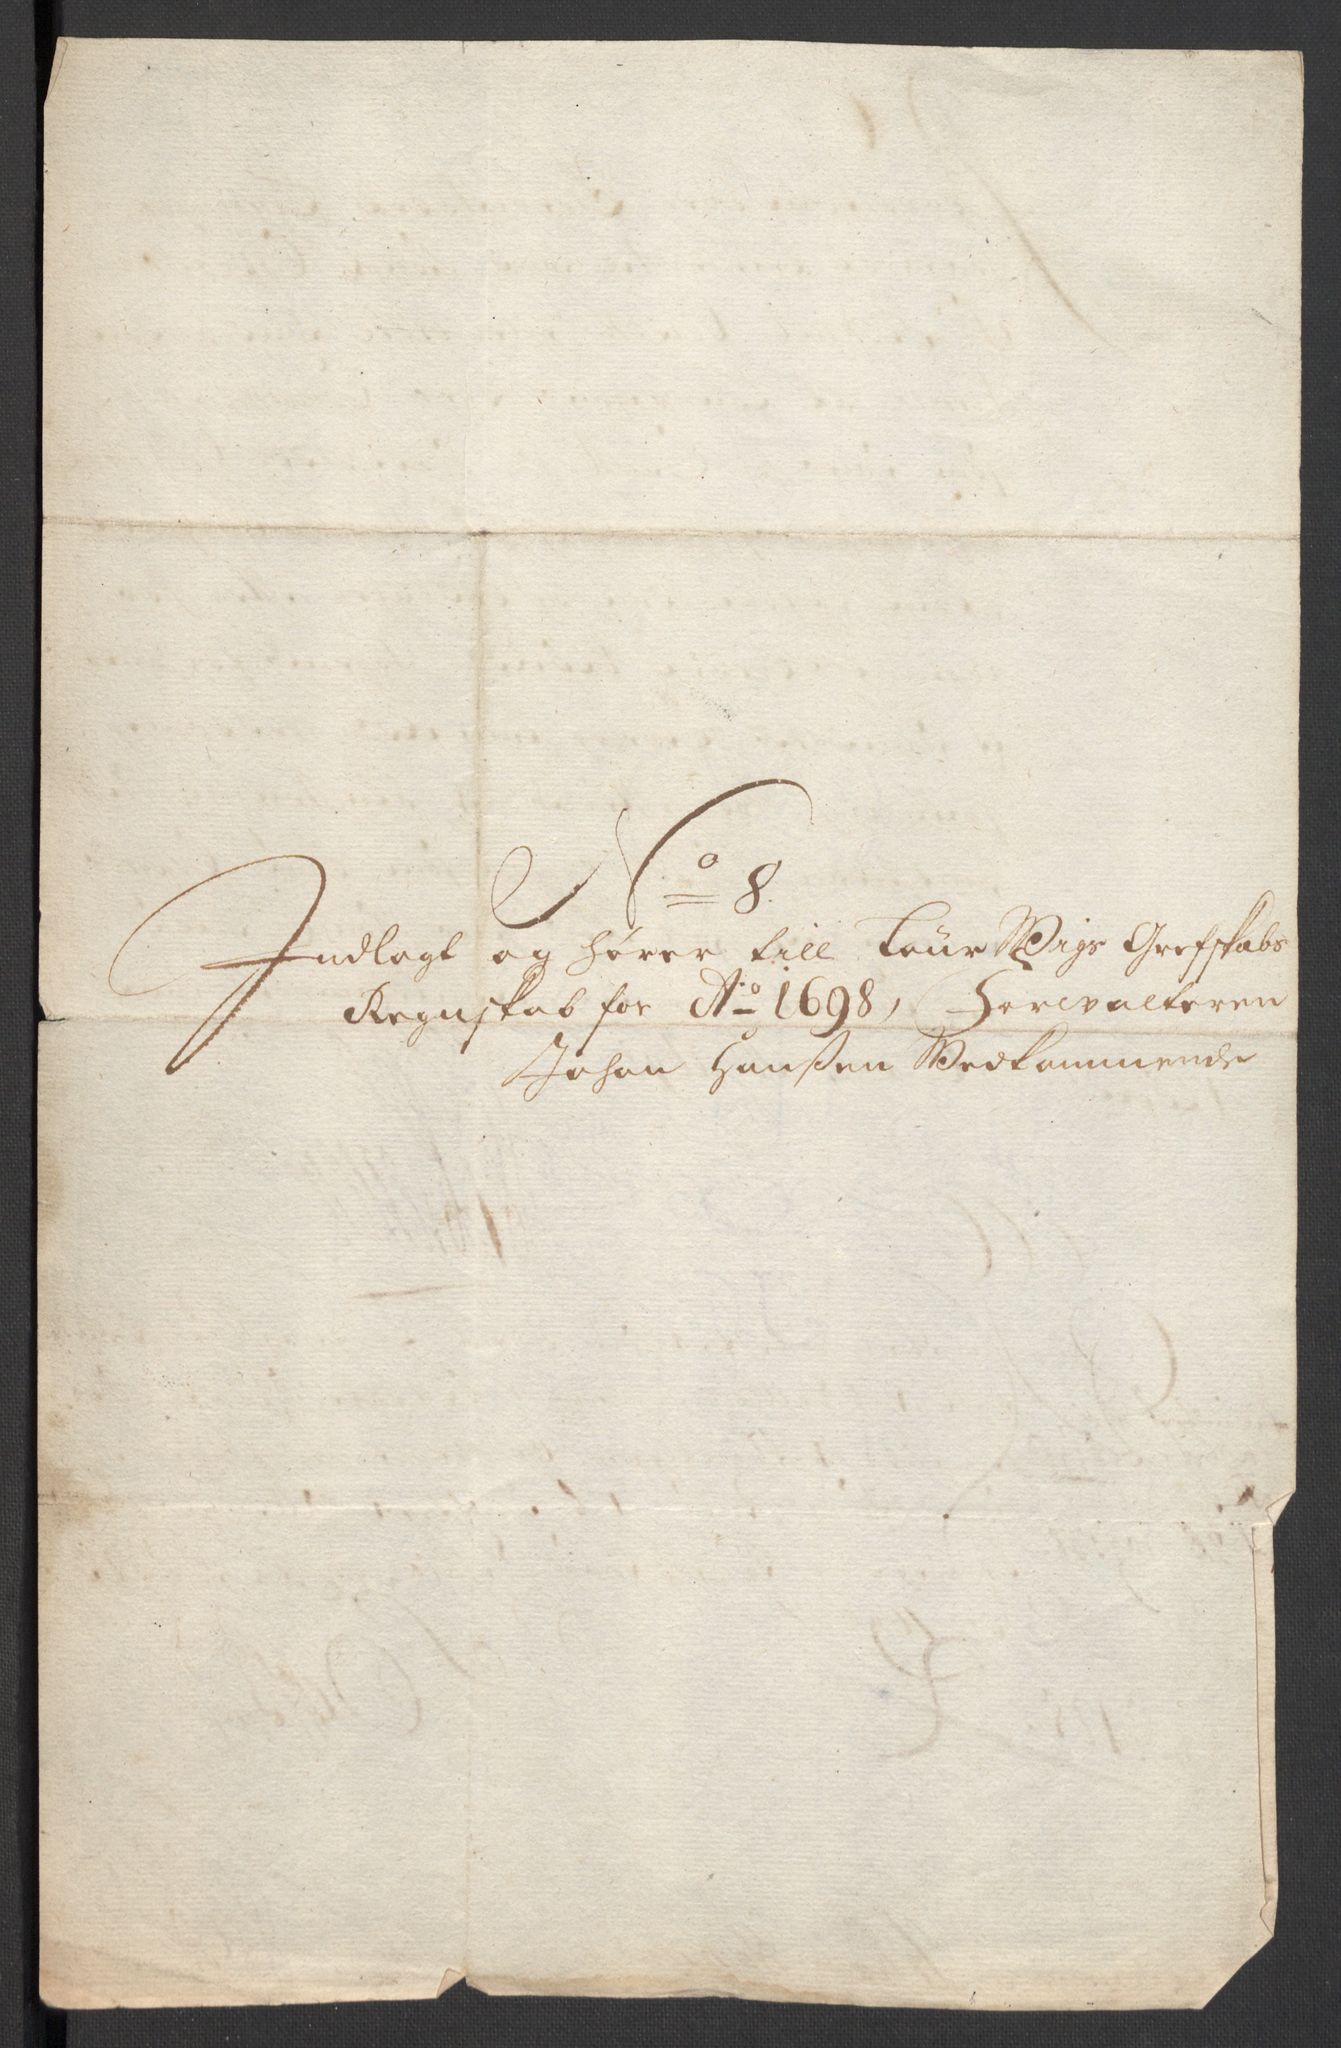 No 8.
Indlagt og hører till LaurWigs Grefskabs
Regnskab for Ao 1698, Forvalteren
Johan Hanßen Vedkommende